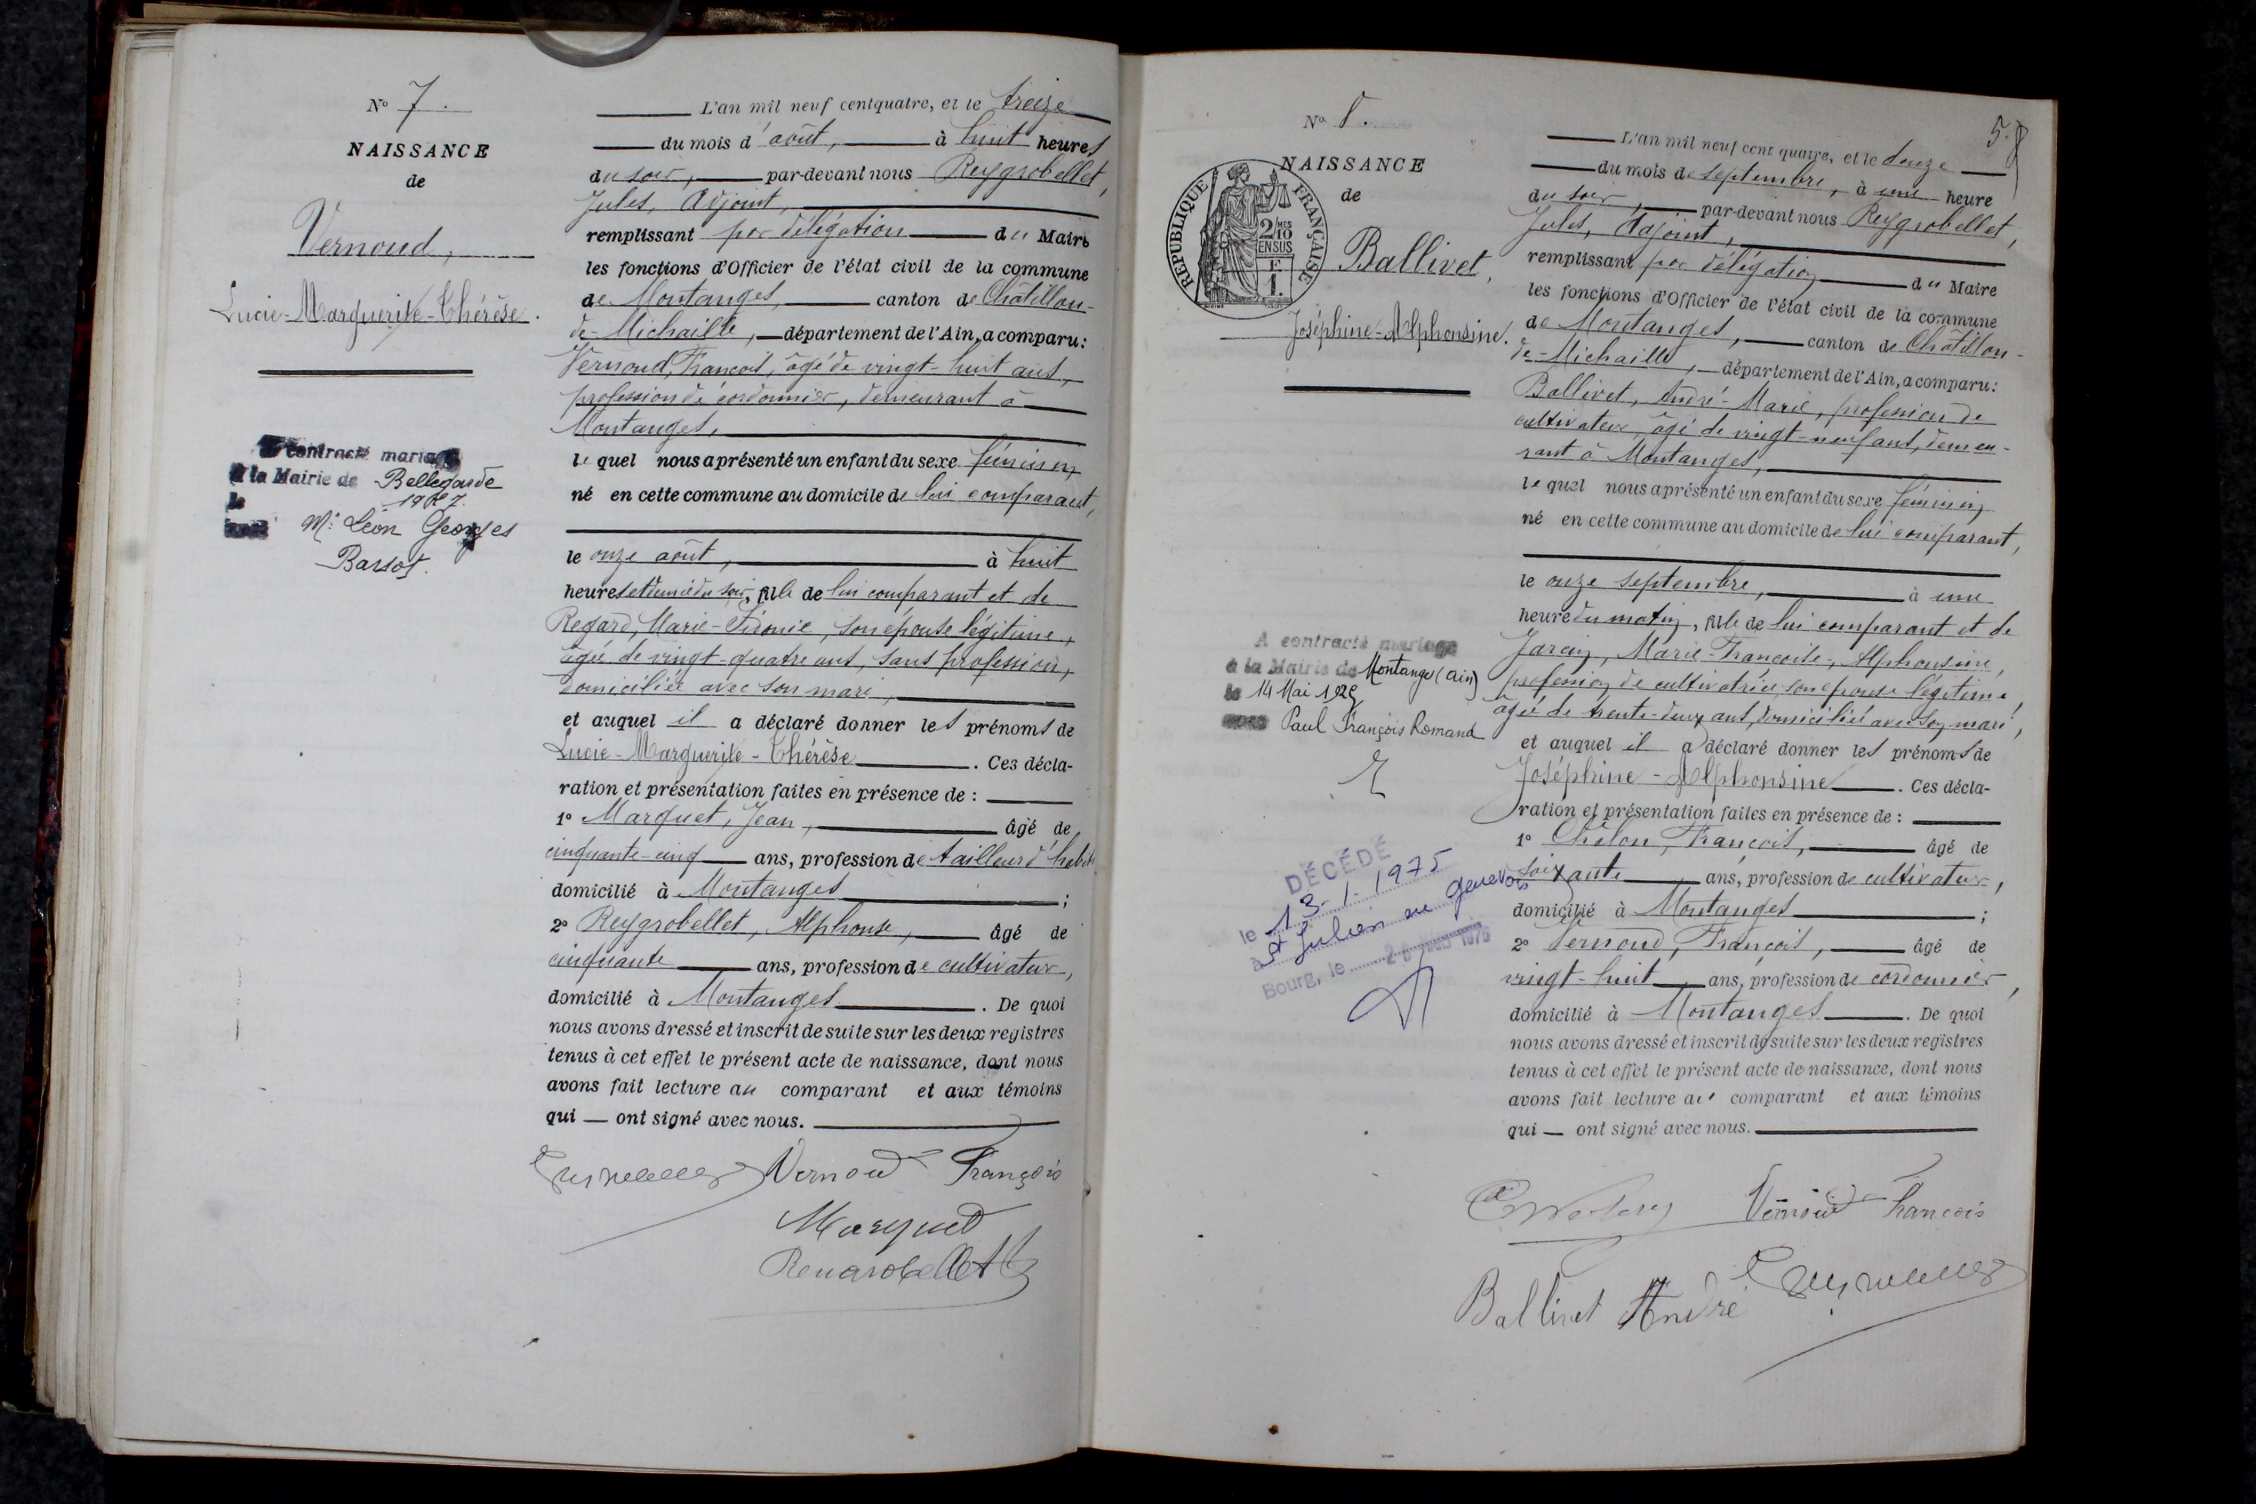 Nº 7.
NAISSANCE
de
Vernoud,
Lucie-Marguerite-Thérèse.
contracté mariage
à la Mairie de Bellegarde
le
Mr Léon Georges
Barsot.
L'an mil neuf cent quatre, et le treize
du mois d'août, à huit heures
du soir, par-devant nous Reygrobellet,
Jules, Adjoint,
remplissant par délégation du Maire
les fonctions d'Officier de l'état civil de la commune
de Montanges, canton de Châtillon-
de-Michaille, département de l'Ain, a comparu:
Vernoud, François, âgé de vingt-huit ans,
profession de cordonnier, demeurant à
Montanges,
lequel nous a présenté un enfant du sexe féminin,
né en cette commune au domicile de lui comparant,
le onze août, à huit
heures et demie du soir, fille de lui comparant et de
Regard, Marie-Sidonie, son épouse légitime,
âgée de vingt-quatre ans, sans profession,
domiciliée avec son mari,
et auquel il a déclaré donner les prénoms de
Lucie-Marguerite-Thérèse. Ces décla-
ration et présentation faites en présence de :
1º Marquet, Jean, âgé de
cinquante-cinq ans, profession de tailleur d'habits
domicilié à Montanges ;
2º Reygrobellet, Alphonse, âgé de
cinquante ans, profession de cultivateur,
domicilié à Montanges. De quoi
nous avons dressé et inscrit de suite sur les deux registres
tenus à cet effet le présent acte de naissance, dont nous
avons fait lecture au comparant et aux témoins
qui — ont signé avec nous.
Vernoud François
Marquet
Nº 8.
58
NAISSANCE
de
RÉPUBLIQUE FRANÇAISE
2/10 MES
EN SUS
Ballivet,
Joséphine-Alphonsine.
A contracté mariage
à la Mairie de Montanges (Ain)
le 14 Mai 1925
Paul François Romand
DÉCÉDÉ
le 13-1-1975
à St Julien en Genevois
Bourg, le
L'an mil neuf cent quatre, et le douze
du mois de septembre, à une heure
du soir, par-devant nous Reygrobellet,
Jules, Adjoint,
remplissant par délégation du Maire
les fonctions d'Officier de l'état civil de la commune
de Montanges, canton de Châtillon-
de-Michaille, département de l'Ain, a comparu:
Ballivet, André-Marie, profession de
cultivateur, âgé de vingt-neuf ans, demeu-
rant à Montanges,
lequel nous a présenté un enfant du sexe féminin,
né en cette commune au domicile de lui comparant,
le onze septembre, à une
heure du matin, fille de lui comparant et de
Jarcin, Marie-Françoise, Alphonsine,
profession de cultivatrice, son épouse légitime,
âgée de trente-deux ans, domiciliée avec son mari,
et auquel il a déclaré donner les prénoms de
Joséphine-Alphonsine. Ces décla-
ration et présentation faites en présence de :
1º Chêlon, François, âgé de
soixante ans, profession de cultivateur,
domicilié à Montanges ;
2º Vernoud, François, âgé de
vingt-huit ans, profession de cordonnier,
domicilié à Montanges. De quoi
nous avons dressé et inscrit de suite sur les deux registres
tenus à cet effet le présent acte de naissance, dont nous
avons fait lecture au comparant et aux témoins
qui — ont signé avec nous.
Vernoud François
Ballivet André